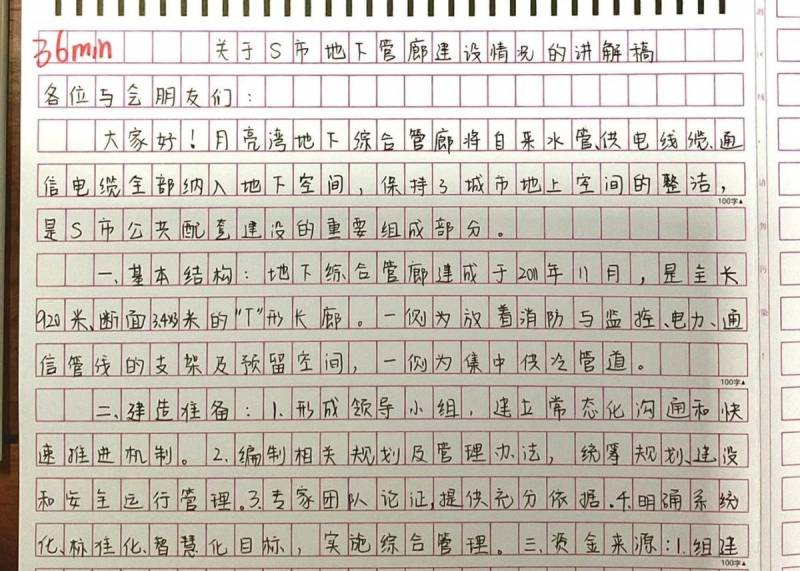 36min 关于S市地下管廊建设情况的讲解稿
各位与会朋友们：
大家好！月亮湾地下综合管廊将自来水管、供电线缆、通
信电缆全部纳入地下空间，保持了城市地上空间的整洁，
100字▲
是S市公共配套建设的重要组成部分。
一、基本结构：地下综合管廊建成于2011年11月，是全长
920米、断面3.4×3米的“T”形长廊。一侧为放着消防与监控、电力、通
信管线的支架及预留空间，一侧为集中供冷管道。
100字▲
二、建造准备：1.形成领导小组，建立常态化沟通和快
速推进机制。2.编制相关规划及管理办法，统筹规划、建设
和安全运行管理。3.专家团队论证，提供充分依据。4.明确系统
化、标准化、智慧化目标，实施综合管理。三、资金来源：1.组建
100字▲